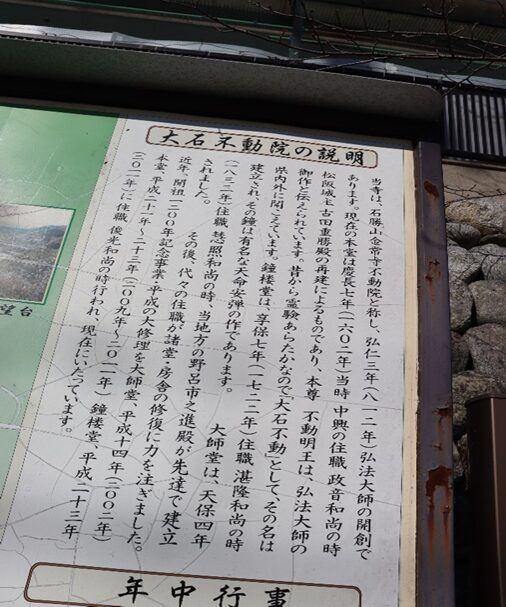 大石不動院の説明
当寺は、石勝山金常寺不動院と称し、弘仁三年(八一二年)弘法大師の開創で
あります。現在の本堂は慶長七年(一六〇二年)当時 中興の住職 政音和尚の時
松阪城主 古田重勝殿の再建によるものであり、本尊 不動明王は、弘法大師の
御作と伝えられています。昔から霊験あらたかなので「大石不動」として、その名は
県内外に聞こえています。鐘楼堂は、享保七年(一七二二年)住職 湛隆和尚の時
建立され、その鐘は有名な天命安弾の作であります。 大師堂は、天保四年
(一八三三年)住職 慧照和尚の時、当地方の野呂市之進殿が先達で建立
されました。 その後、代々の住職が諸堂・房舎の修復に力を注ぎました。
近年、開祖一二〇〇年記念事業・平成の大修理を大師堂、平成十四年(二〇〇二年)
本堂、平成二十一年〜二十三年(二〇〇九年〜二〇一一年) 鐘楼堂、平成二十三年
(二〇一一年)に住職 俊光和尚の時行われ、現在にいたっています。
望台
年中行事